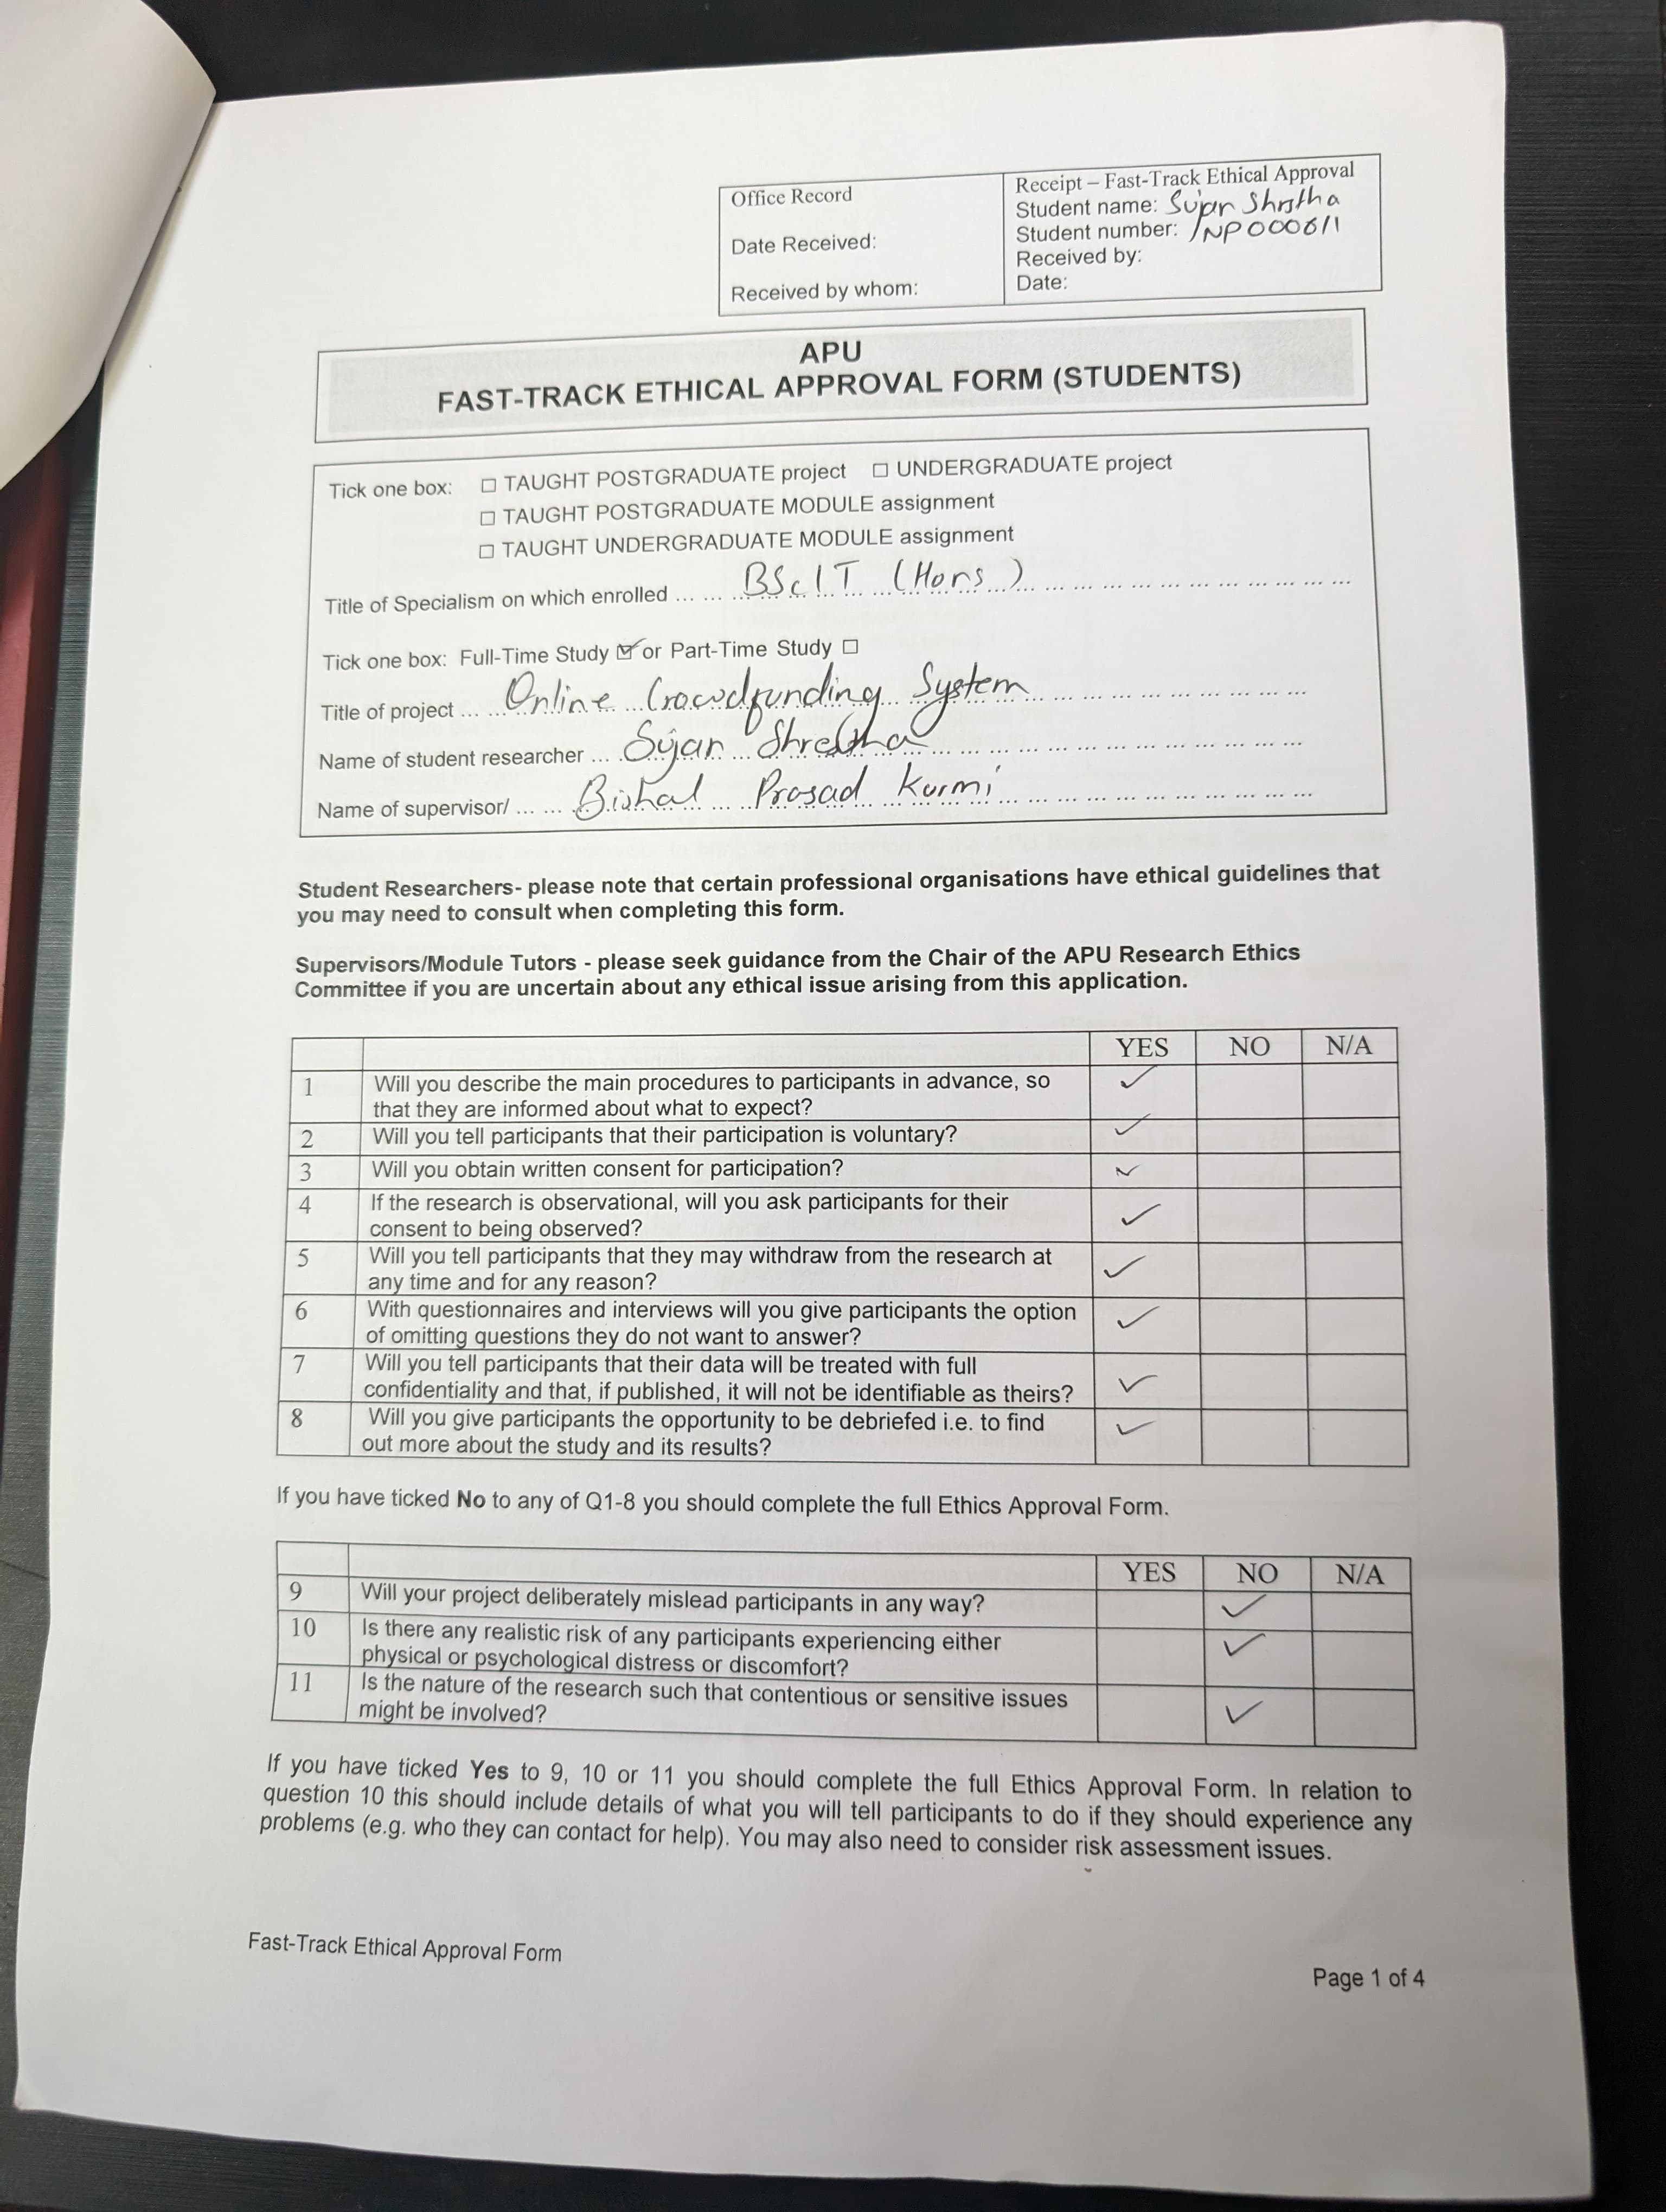 Office Record
Date Received:
Received by whom:
Receipt – Fast-Track Ethical Approval
Student name: Sujan Shrstha
Student number: NP000611
Received by:
Date:
APU
FAST-TRACK ETHICAL APPROVAL FORM (STUDENTS)
Tick one box: ☐ TAUGHT POSTGRADUATE project ☐ UNDERGRADUATE project
☐ TAUGHT POSTGRADUATE MODULE assignment
☐ TAUGHT UNDERGRADUATE MODULE assignment
Title of Specialism on which enrolled ... BSc IT (Hons)
Tick one box: Full-Time Study ☑ or Part-Time Study ☐
Title of project ... Online Crowdfunding System
Name of student researcher ... Sujan Shrestha
Name of supervisor/ ... Bishal Prasad Kurmi
Student Researchers- please note that certain professional organisations have ethical guidelines that
you may need to consult when completing this form.
Supervisors/Module Tutors - please seek guidance from the Chair of the APU Research Ethics
Committee if you are uncertain about any ethical issue arising from this application.
YES NO N/A
1 Will you describe the main procedures to participants in advance, so ✓
that they are informed about what to expect?
2 Will you tell participants that their participation is voluntary? ✓
3 Will you obtain written consent for participation? ✓
4 If the research is observational, will you ask participants for their ✓
consent to being observed?
5 Will you tell participants that they may withdraw from the research at ✓
any time and for any reason?
6 With questionnaires and interviews will you give participants the option ✓
of omitting questions they do not want to answer?
7 Will you tell participants that their data will be treated with full ✓
confidentiality and that, if published, it will not be identifiable as theirs?
8 Will you give participants the opportunity to be debriefed i.e. to find ✓
out more about the study and its results?
If you have ticked No to any of Q1-8 you should complete the full Ethics Approval Form.
YES NO N/A
9 Will your project deliberately mislead participants in any way? ✓
10 Is there any realistic risk of any participants experiencing either ✓
physical or psychological distress or discomfort?
11 Is the nature of the research such that contentious or sensitive issues ✓
might be involved?
If you have ticked Yes to 9, 10 or 11 you should complete the full Ethics Approval Form. In relation to
question 10 this should include details of what you will tell participants to do if they should experience any
problems (e.g. who they can contact for help). You may also need to consider risk assessment issues.
Fast-Track Ethical Approval Form
Page 1 of 4